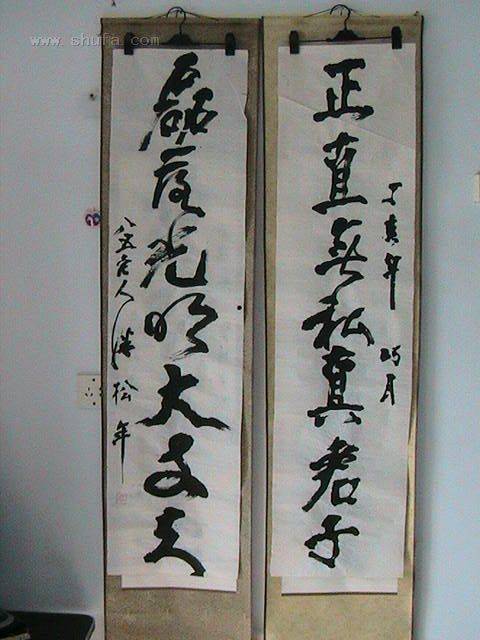 www.shufa.com
正直無私真君子
年 巧月
磊落光明大丈夫
八五老人 松年